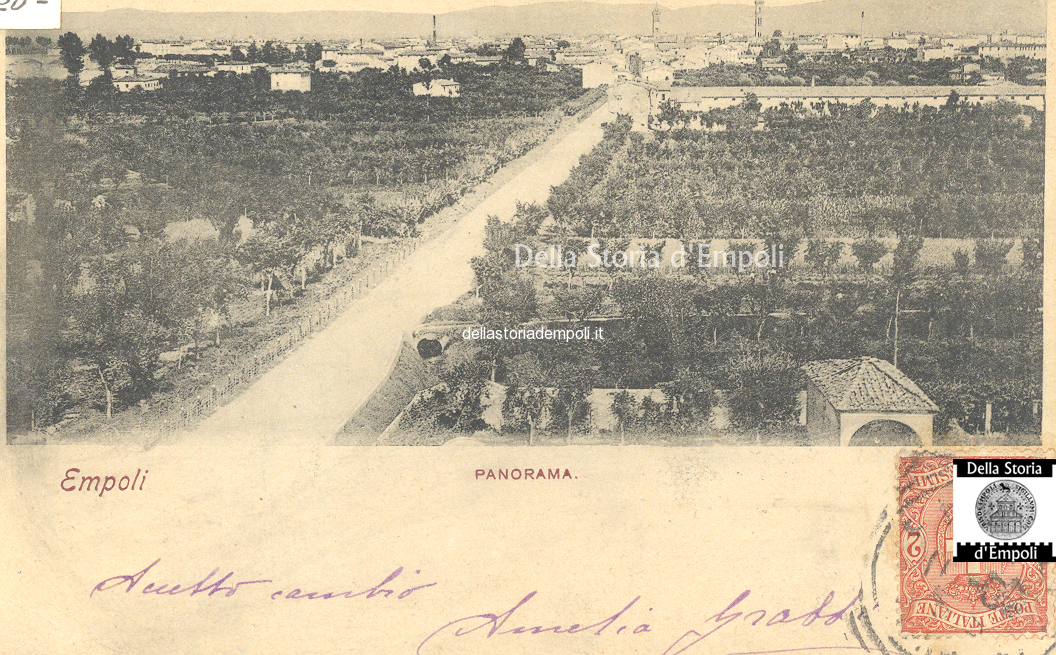 20-
Della Storia d'Empoli
dellastoriadempoli.it
Empoli
PANORAMA.
Della Storia
d'Empoli
2
POSTE ITALIANE
Accetto cambio
Amelia